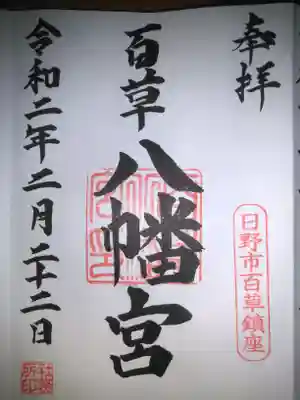 奉拝
日野市百草鎮座
百草八幡宮
令和二年二月二十二日